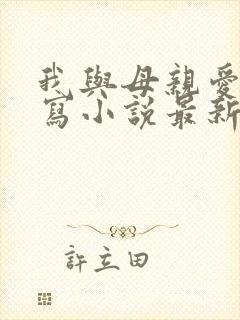 我與母親愛
寫小說最新
許立田